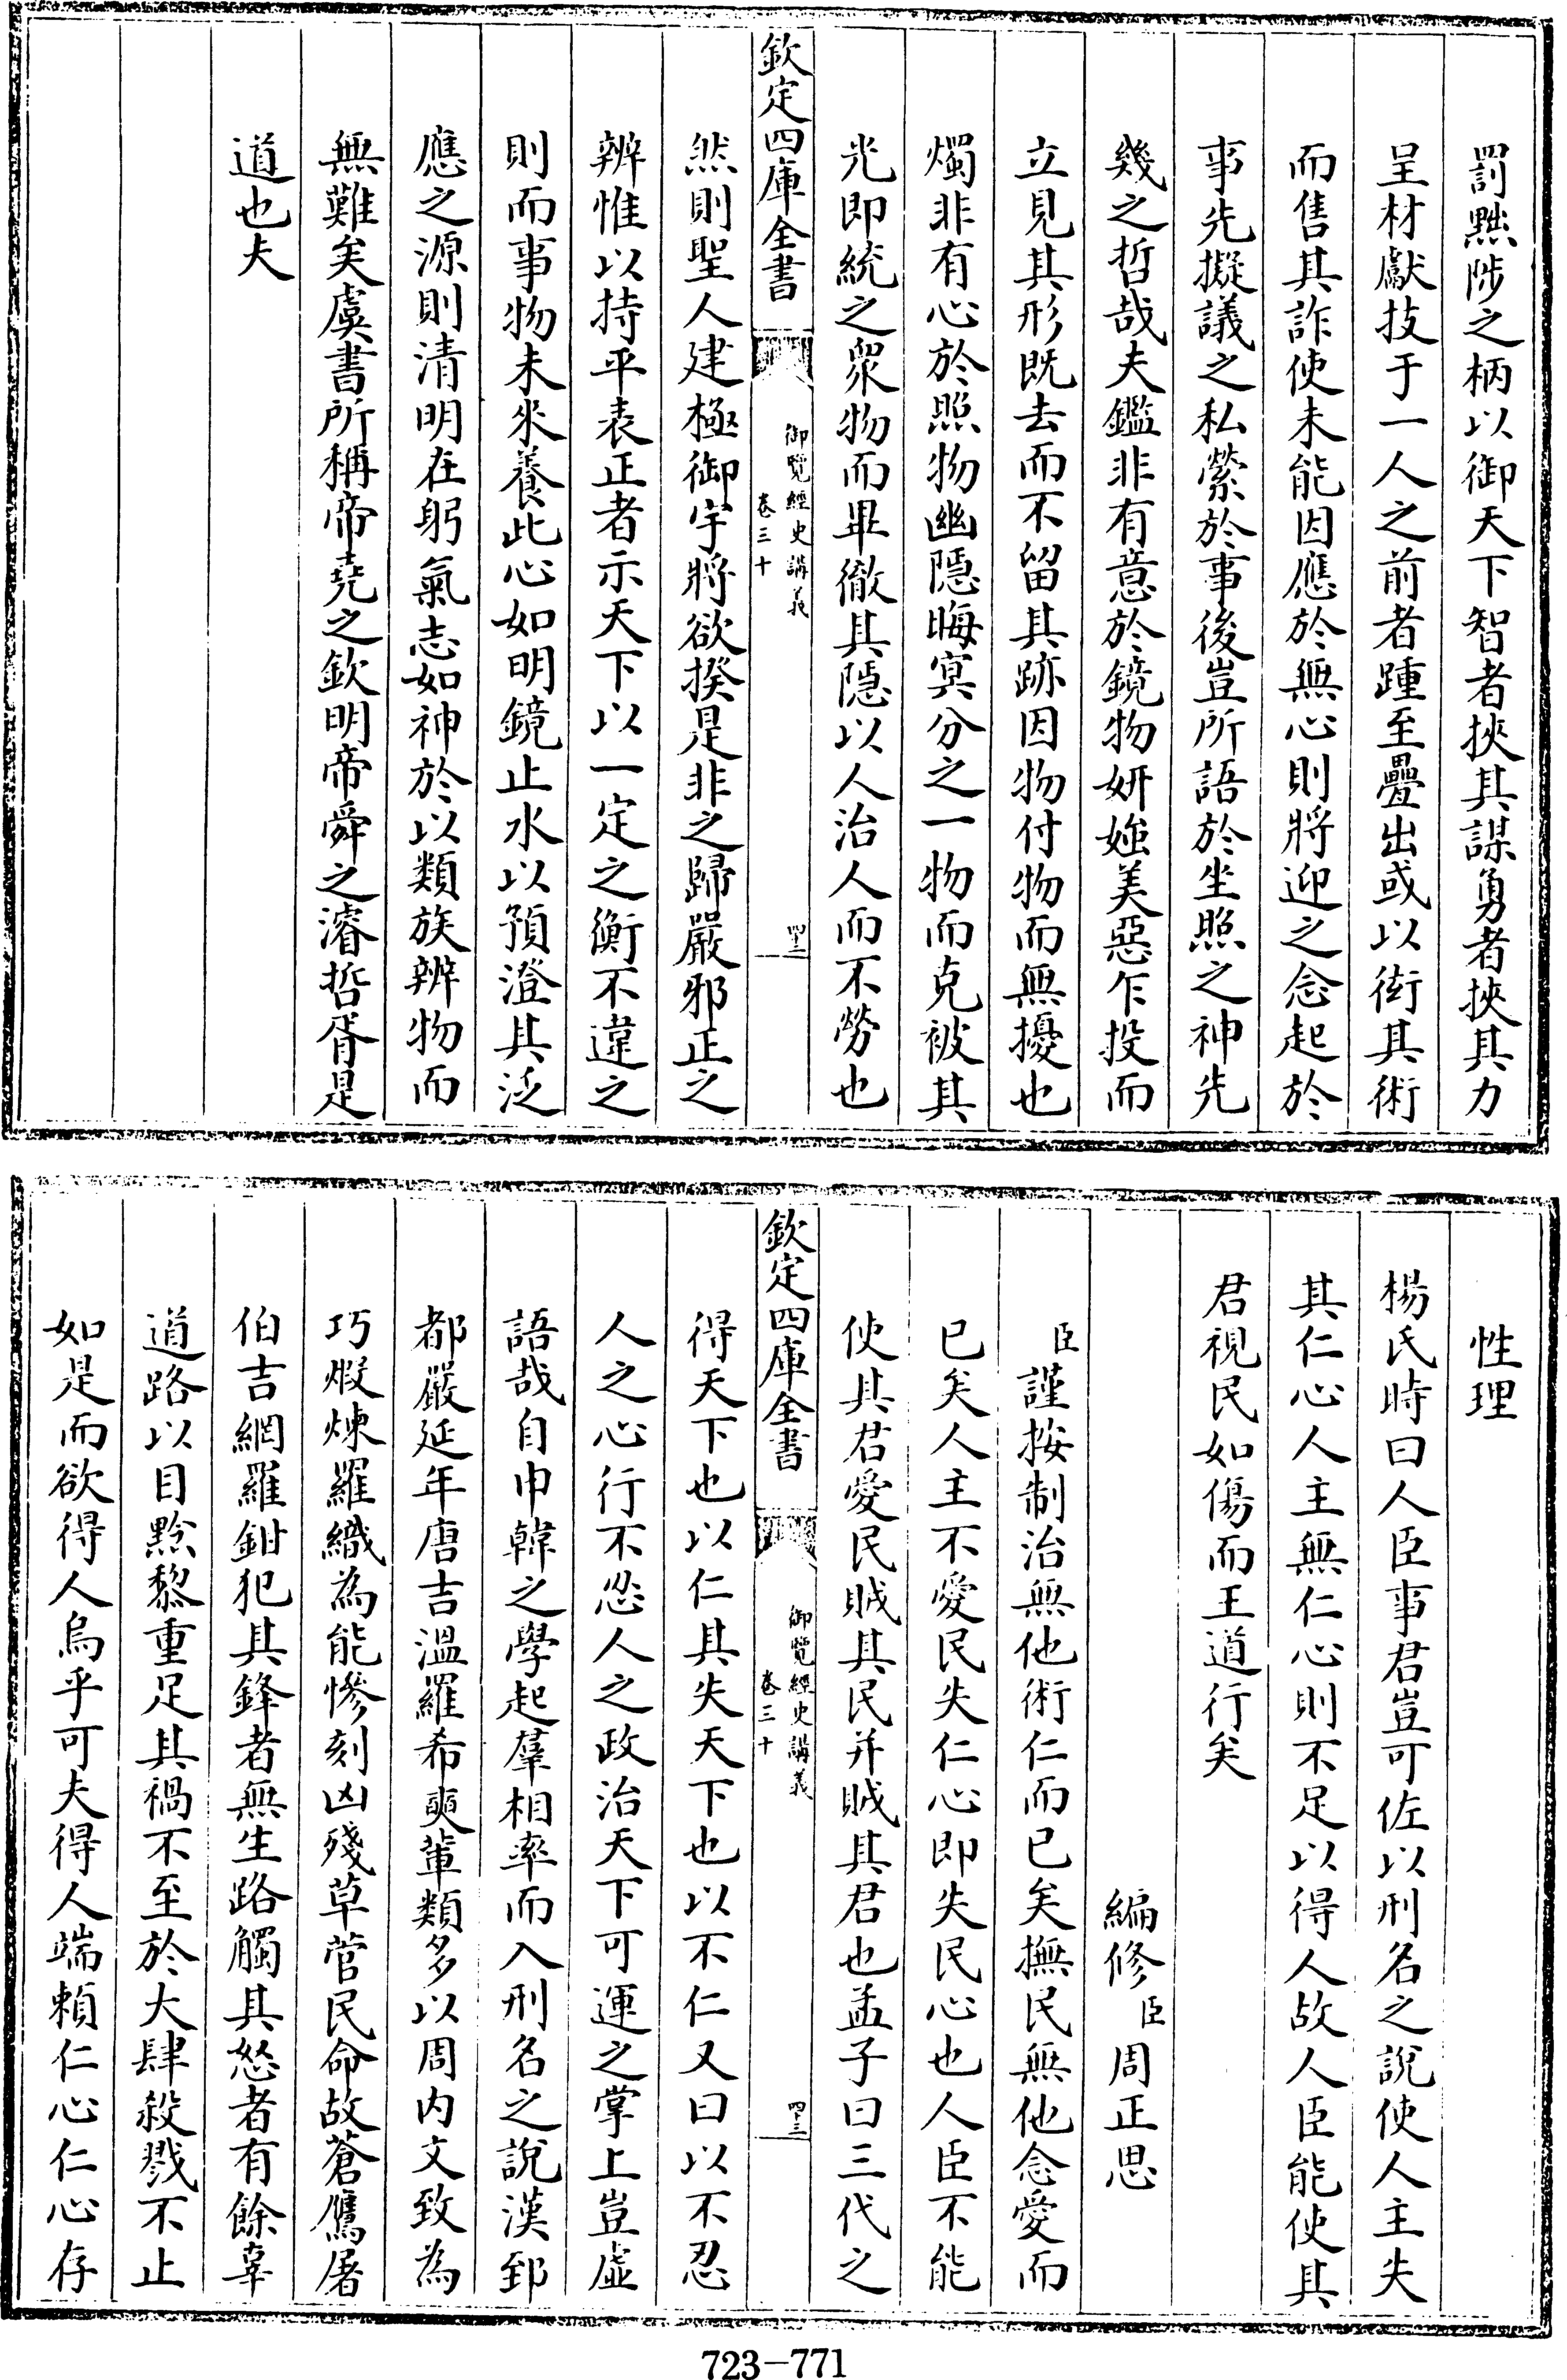 罰黜陟之柄以御天下智者挾其謀勇者挾其力
呈材獻技于一人之前者踵至疊出或以衒其術
而售其詐使未能因應於無心則將迎之念起於
事先擬議之私縈於事後豈所語於坐照之神先
幾之哲哉夫鑑非有意於鏡物妍媸美惡乍投而
立見其形既去而不留其跡因物付物而無擾也
燭非有心於照物幽隱晦冥分之一物而克被其
光即統之衆物而畢徹其隱以人治人而不勞也
欽定四庫全書
御覽經史講義
卷三十
四十二
然則聖人建極御宇將欲揆是非之歸嚴邪正之
辨惟以持平表正者示天下以一定之衡不違之
則而事物未來養此心如明鏡止水以預澄其泛
應之源則清明在躬氣志如神於以類族辨物而
無難矣虞書所稱帝堯之欽明帝舜之濬哲胥是
道也夫
性理
楊氏時曰人臣事君豈可佐以刑名之說使人主失
其仁心人主無仁心則不足以得人故人臣能使其
君視民如傷而王道行矣
編修臣周正思
臣謹按制治無他術仁而已矣撫民無他念愛而
已矣人主不愛民失仁心即失民心也人臣不能
使其君愛民賊其民并賊其君也孟子曰三代之
欽定四庫全書
御覽經史講義
卷三十
四十三
得天下也以仁其失天下也以不仁又曰以不忍
人之心行不忍人之政治天下可運之掌上豈虛
語哉自申韓之學起羣相率而入刑名之說漢郅
都嚴延年唐吉溫羅希奭輩類多以周内文致為
巧煅煉羅織為能慘刻凶殘草菅民命故蒼鷹屠
伯吉網羅鉗犯其鋒者無生路觸其怒者有餘辜
道路以目黔黎重足其禍不至於大肆殺戮不止
如是而欲得人烏乎可夫得人端賴仁心仁心存
723-771